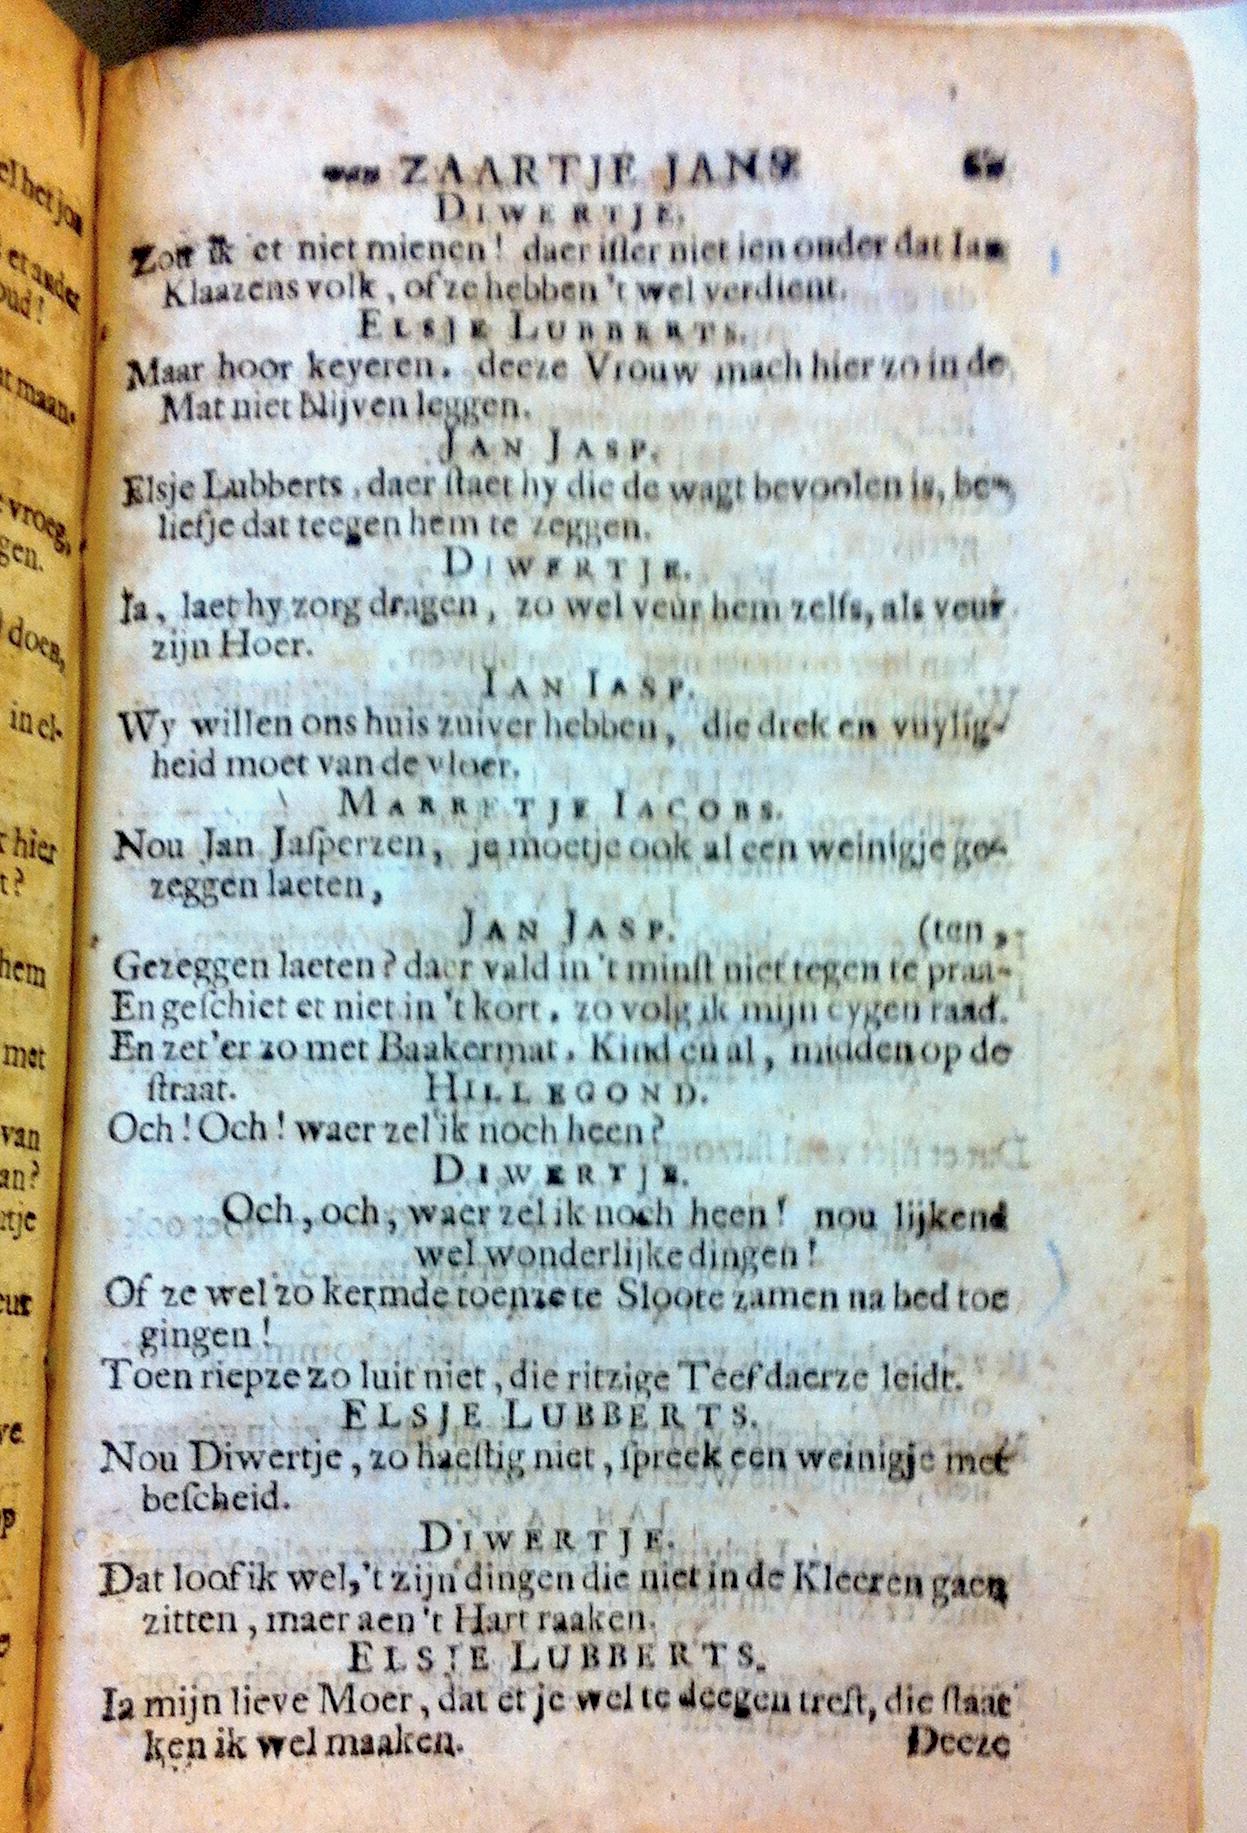 van ZAARTJE JANS
DIWERTJE.
Zou ik et niet mienen! daer isser niet ien onder dat Ian
Klaazens volk, of ze hebben 't wel verdient.
ELSJE LUBBERTS.
Maar hoor keyeren. deeze Vrouw mach hier zo in de
Mat niet blijven leggen.
JAN JASP.
Elsje Lubberts, daer ſtaet hy die de wagt bevoolen is, be-
liefje dat teegen hem te zeggen.
DIWERTJE.
Ia, laet hy zorg dragen, zo wel veur hem zelfs, als veur
zijn Hoer.
IAN IASP.
Wy willen ons huis zuiver hebben, die drek en vuylig-
heid moet van de vloer.
MARRETJE IACOBS.
Nou Jan Jaſperzen, je moetje ook al een weinigje ge-
zeggen laeten,
JAN JASP. (ten,
Gezeggen laeten? daer vald in 't minſt niet tegen te praa-
En geſchiet et niet in 't kort, zo volg ik mijn eygen raad.
En zet'er zo met Baakermat, Kind en al, midden op de
ſtraat. HILLEGOND.
Och! Och! waer zel ik noch heen?
DIWERTJE.
Och, och, waer zel ik noch heen! nou lijkend
wel wonderlijke dingen!
Of ze wel zo kermde toenze te Sloote zamen na bed toe
gingen!
Toen riepze zo luit niet, die ritzige Teef daerze leidt.
ELSJE LUBBERTS.
Nou Diwertje, zo haeſtig niet, ſpreek een weinigje met
beſcheid.
DIWERTJE.
Dat loof ik wel, 't zijn dingen die niet in de Kleeren gaen
zitten, maer aen 't Hart raaken.
ELSJE LUBBERTS.
Ia mijn lieve Moer, dat et je wel te deegen treft, die ſtaat
ken ik wel maaken. Deeze